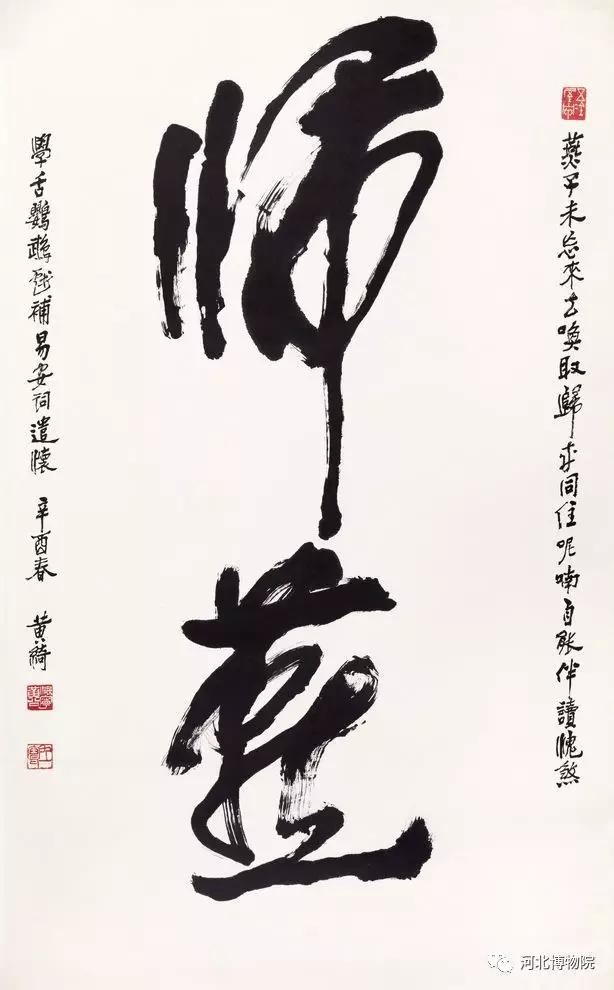 燕子未忘來去喚取歸來同住呢喃自能伴讀愧煞
帰燕
學舌鸚鵡戲補易安詞遣懷 辛酉春 黄綺
河北博物院